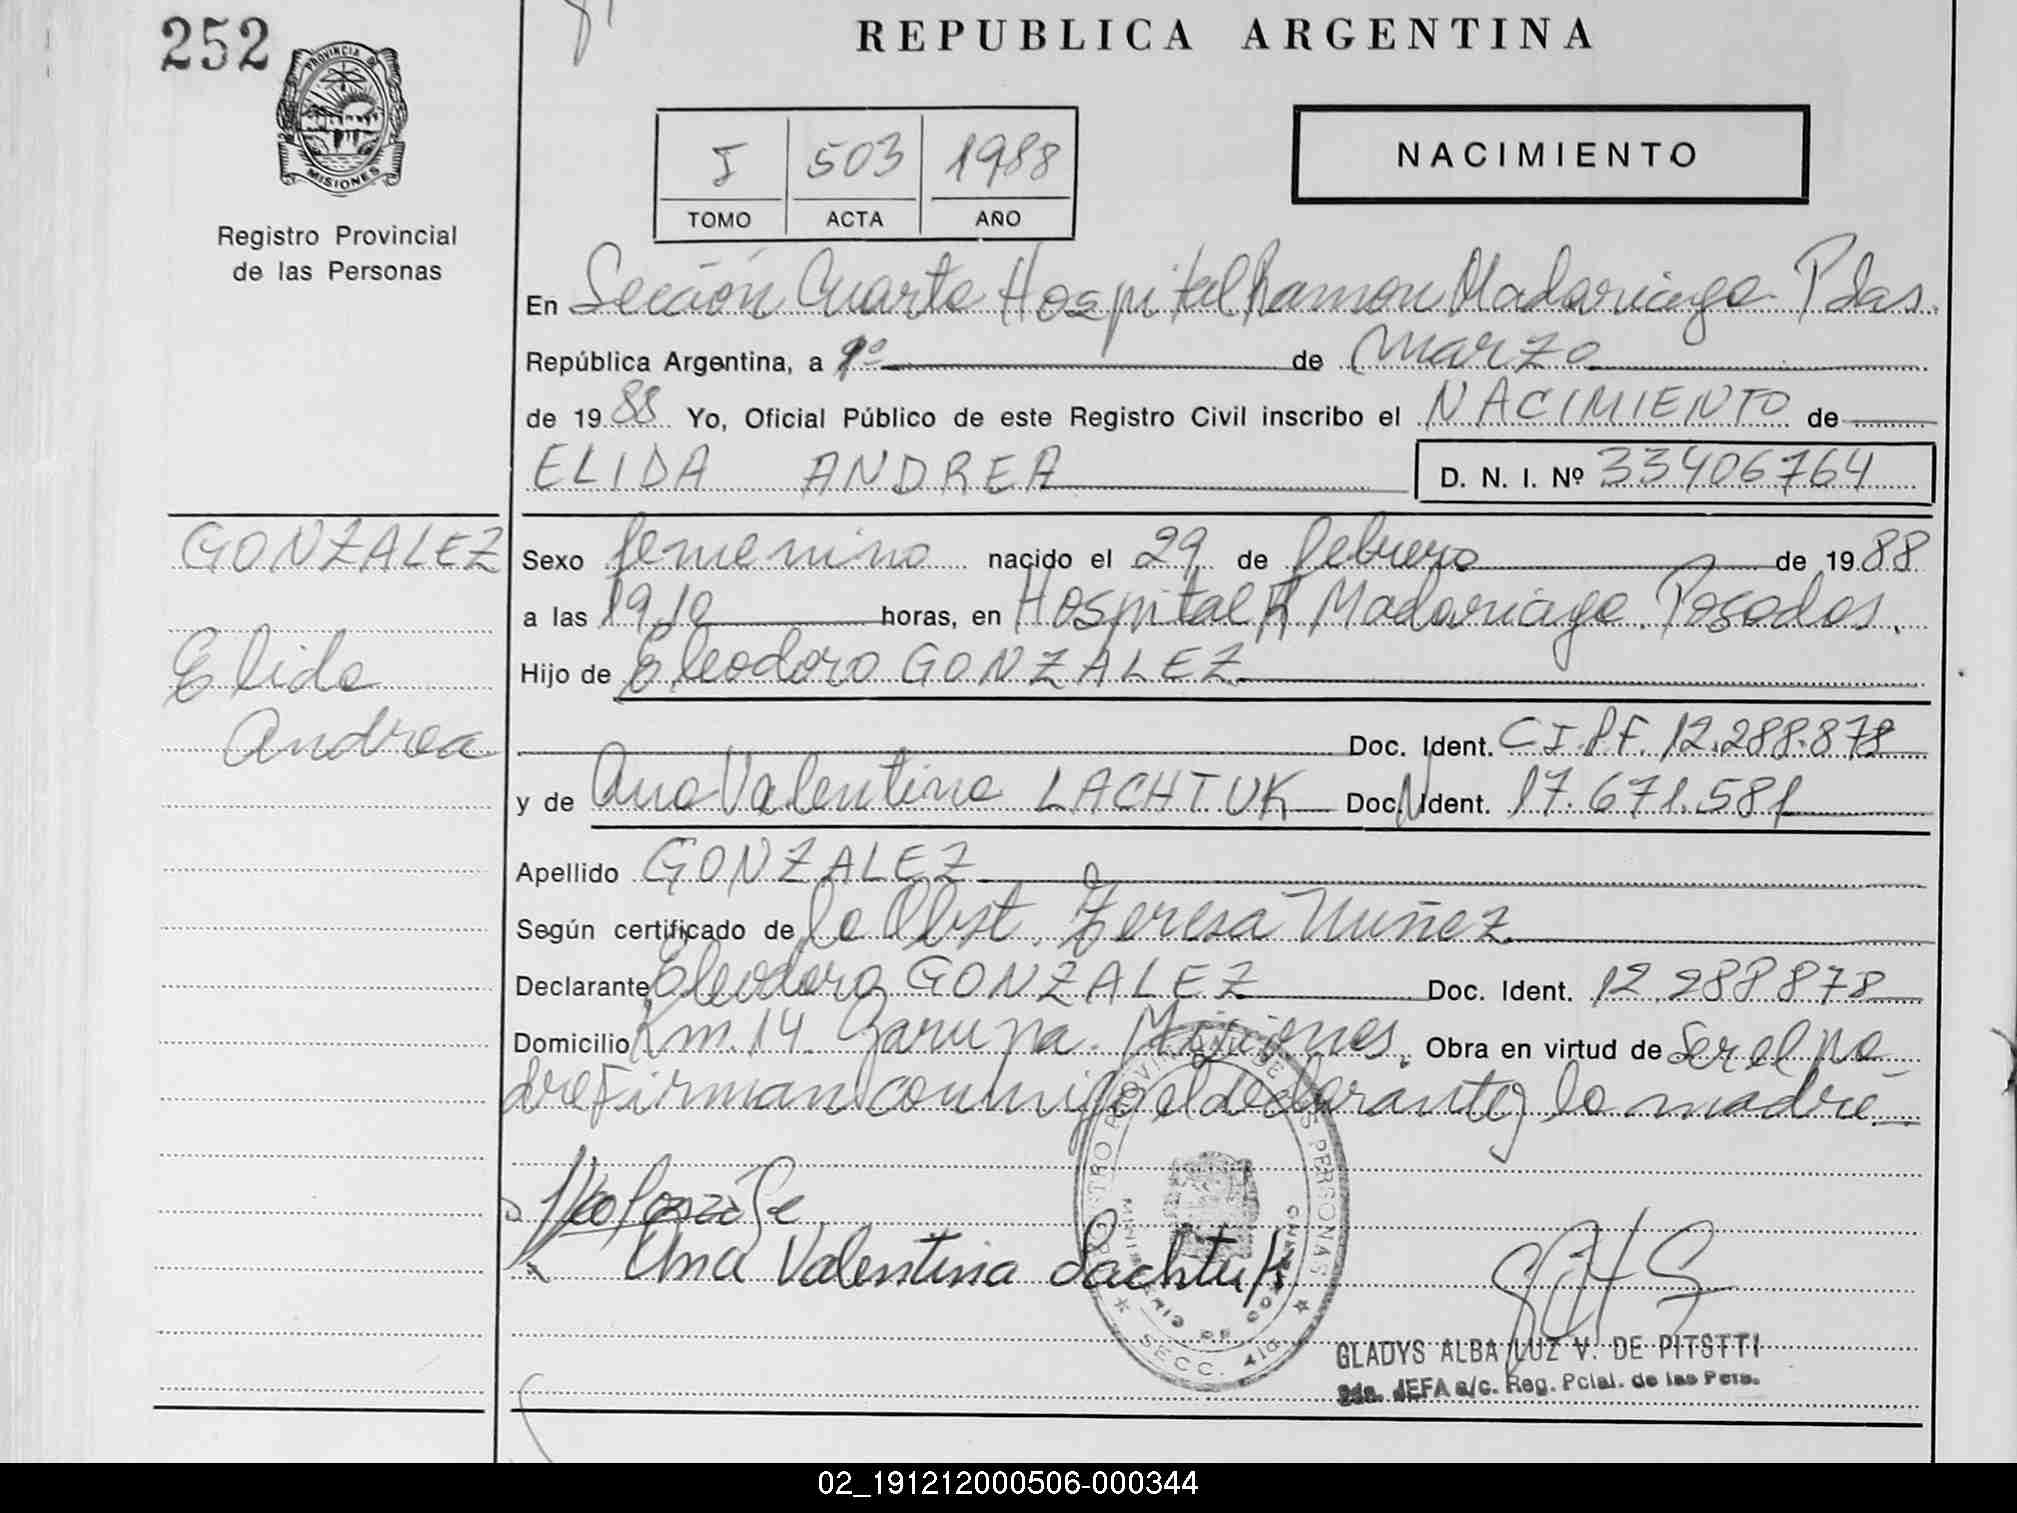 252
REPUBLICA ARGENTINA
PROVINCIA DE
MISIONES
Registro Provincial
de las Personas
I 503 1988
TOMO ACTA AÑO
NACIMIENTO
En Sección Cuarta Hospital Ramon Madariaga Pdas.
República Argentina, a 1º de Marzo
de 1988 Yo, Oficial Público de este Registro Civil inscribo el NACIMIENTO de
ELIDA ANDREA D. N. I. Nº 33406764
GONZALEZ
Elida
Andrea
Sexo femenino nacido el 29 de febrero de 1988
a las 19,10 horas, en Hospital R Madariaga. Posadas.
Hijo de Eleodoro GONZALEZ
Doc. Ident. CI.PF. 12.288.878
y de Ana Valentina LACHTUK Doc. N Ident. 17.671.581
Apellido GONZALEZ
Según certificado de la Obst. Teresa Nuñez
Declarante Eleodoro GONZALEZ Doc. Ident. 12 288 878
Domicilio Km. 14. Garupa. Misiones. Obra en virtud de Ser el pa
dre Firman conmigo el declarante y la madre
Ana Valentina Lachtuk
REGISTRO PROVINCIAL DE LAS PERSONAS
MINISTERIO DE GOBIERNO
SECC. 4ta
GLADYS ALBA LUZ V. DE PITSTTI
2da. JEFA a/c. Reg. Pcial. de las Pers.
02_191212000506-000344